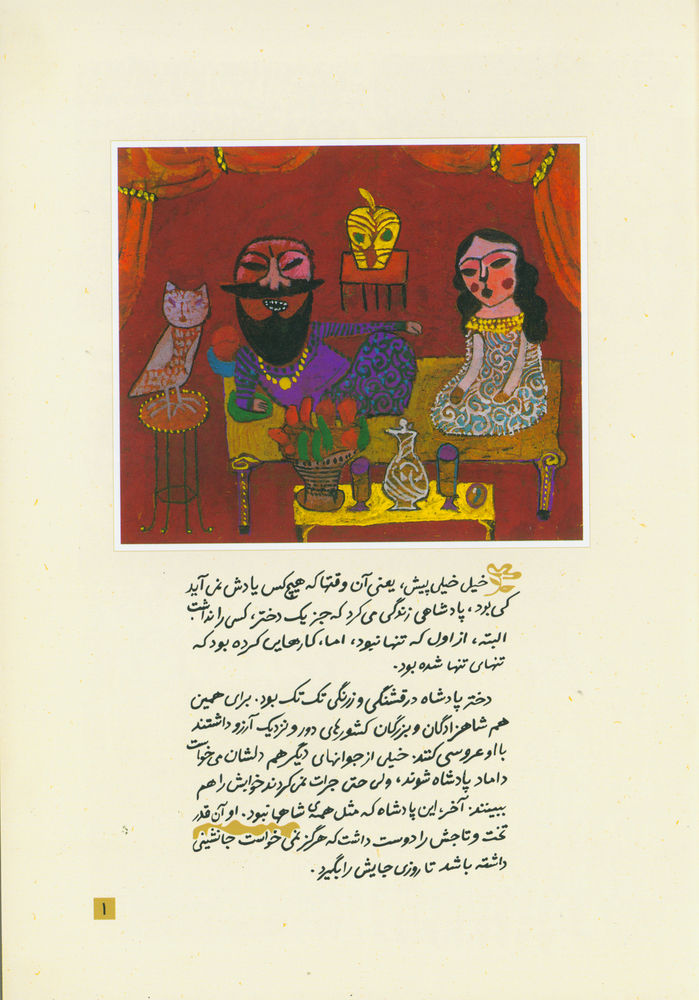 خیلی خیلی پیش، یعنی آن وقتها که هیچ‌کس یادش نمی‌آید
کی بود، پادشاهی زندگی می‌کرد که جز یک دختر، کسی را نداشت
البته، از اول که تنها نبود، اما، کارهایی کرده بود که
تنهای تنها شده بود.
دختر پادشاه در قشنگی و زرنگی تک تک بود. برای همین
هم شاهزادگان و بزرگان کشورهای دور و نزدیک آرزو داشتند
با او عروسی کنند. خیلی از جوانهای دیگر هم دلشان می‌خواست
داماد پادشاه شوند، ولی حتی جرات نمی‌کردند خوابش را هم
ببینند. آخر، این پادشاه که مثل همه‌ی شاهها نبود. او آن قدر
تخت و تاجش را دوست داشت که هرگز نمی‌خواست جانشینی
داشته باشد تا روزی جایش را بگیرد.
۱